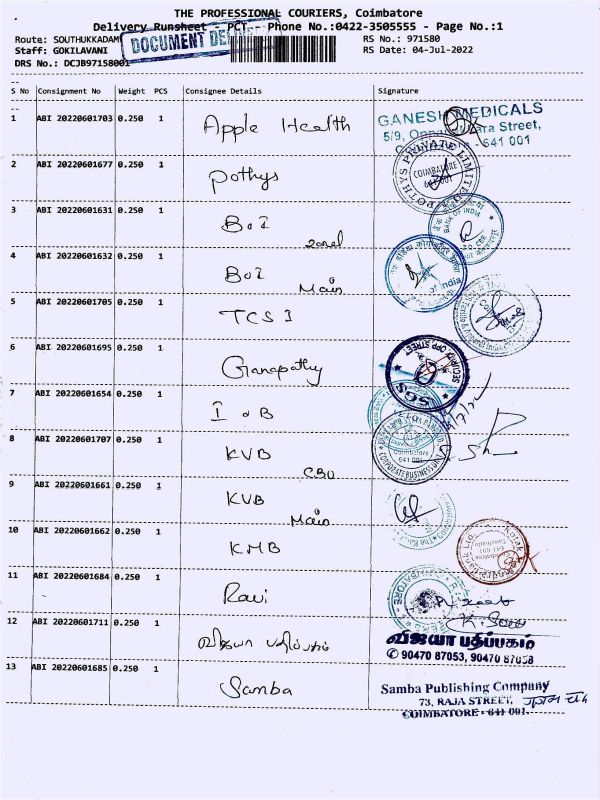 THE PROFESSIONAL COURIERS, Coimbatore
Delivery Runsheet - PCT - Phone No.:0422-3505555 - Page No.:1
Route: SOUTHUKKADAM
DOCUMENT DE
RS No.: 971580
Staff: GOKILAVANI
RS Date: 04-Jul-2022
DRS No.: DCJB97158001
S No Consignment No Weight PCS Consignee Details Signature
1 ABI 20220601703 0.250 1 Apple Health
GANESH MEDICALS
5/9, Street,
641 001
2 ABI 20220601677 0.250 1 Pothys
POTHYS PRIVATE LIMITED
COIMBATORE
641 001
3 ABI 20220601631 0.250 1 BOI
Zonal
BANK OF INDIA
4 ABI 20220601632 0.250 1 BOI
Main
of India
5 ABI 20220601705 0.250 1 TCS I
6 ABI 20220601695 0.250 1 Ganapathy
OPP STREET
SGS
7 ABI 20220601654 0.250 1 IOB
8 ABI 20220601707 0.250 1 KVB
CBU
Coimbatore
641 001
CORPORATE BUSINESS
9 ABI 20220601661 0.250 1 KVB
Main
10 ABI 20220601662 0.250 1 KMB
Kotak
11 ABI 20220601684 0.250 1 Ravi
12 ABI 20220601711 0.250 1 விஜயா பதிப்பகம்
விஜயா பதிப்பகம்
✆ 90470 87053, 90470 87058
13 ABI 20220601685 0.250 1 Samba
Samba Publishing Company
73, RAJA STREET,
COIMBATORE - 641 001.